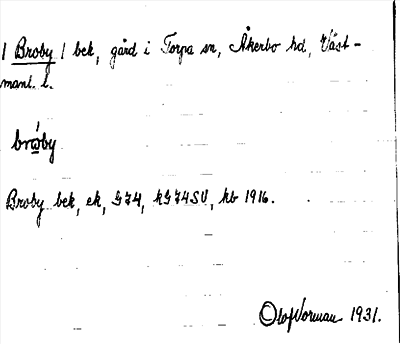 / Broby / bek, gård i Torpa sn, Åkerbo hd, Väst-
manl. l.
bròby
Broby bek, ek, G74, kG74SV, kb 1916.
Olof Norman 1931.